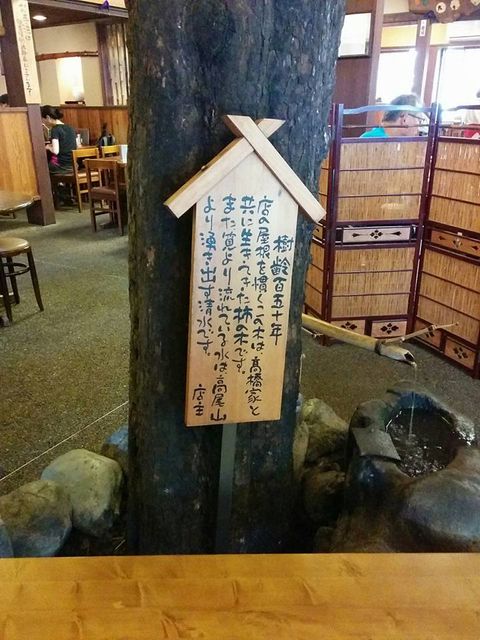 樹齢百五十年
店の屋根を慣くこの木は、高橋家と
共に生きてきた柿の木です。
また筧より流れている水は、高尾山
より湧き出す清水です。
店主